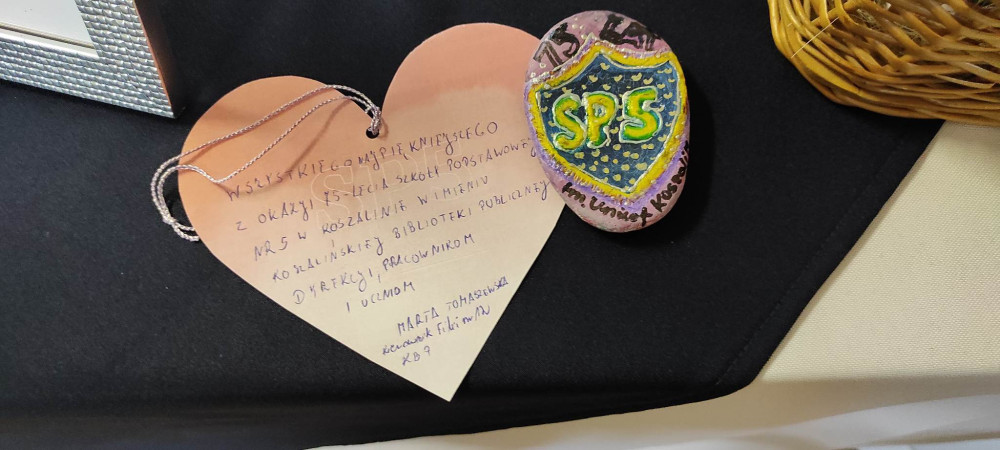 WSZYSTKIEGO NAJPIĘKNIEJSZEGO
Z OKAZJI 75-LECIA SZKOŁY PODSTAWOWEJ
NR 5 W KOSZALINIE W IMIENIU
KOSZALIŃSKIEJ BIBLIOTEKI PUBLICZNEJ
DYREKCJI, PRACOWNIKOM
I UCZNIOM
MARTA TOMASZEWSKA
Kierownik Filii nr
KBP
75 LAT
SP5
im. Unicef Koszalin